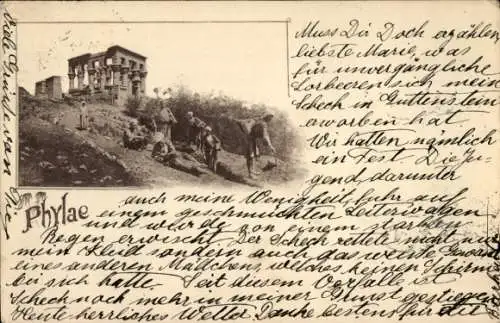 Muss Dir Doch erzählen
liebste Marie, was
für unvergängliche
Lorbeeren sich mein
Schech in Guttenstein
erworben hat
Wir hatten nämlich
ein Fest Die Ju-
gend, darunter
Phylae
auch meine Wenigkeit, fuhr auf
einem geschmückten Leiterwagen
und wurde von einem starken
Regen erwischt. Der Schech rettete nicht nur
mein Kleid sondern auch das weisse
eines anderen Mädchens, welches keinen Schirm
bei sich hatte. Seit diesem Vorfalle ist
Schech noch mehr in meiner Gunst gestiegen
Heute herrliches Wetter Danke bestens für die
Viele Grüsse von